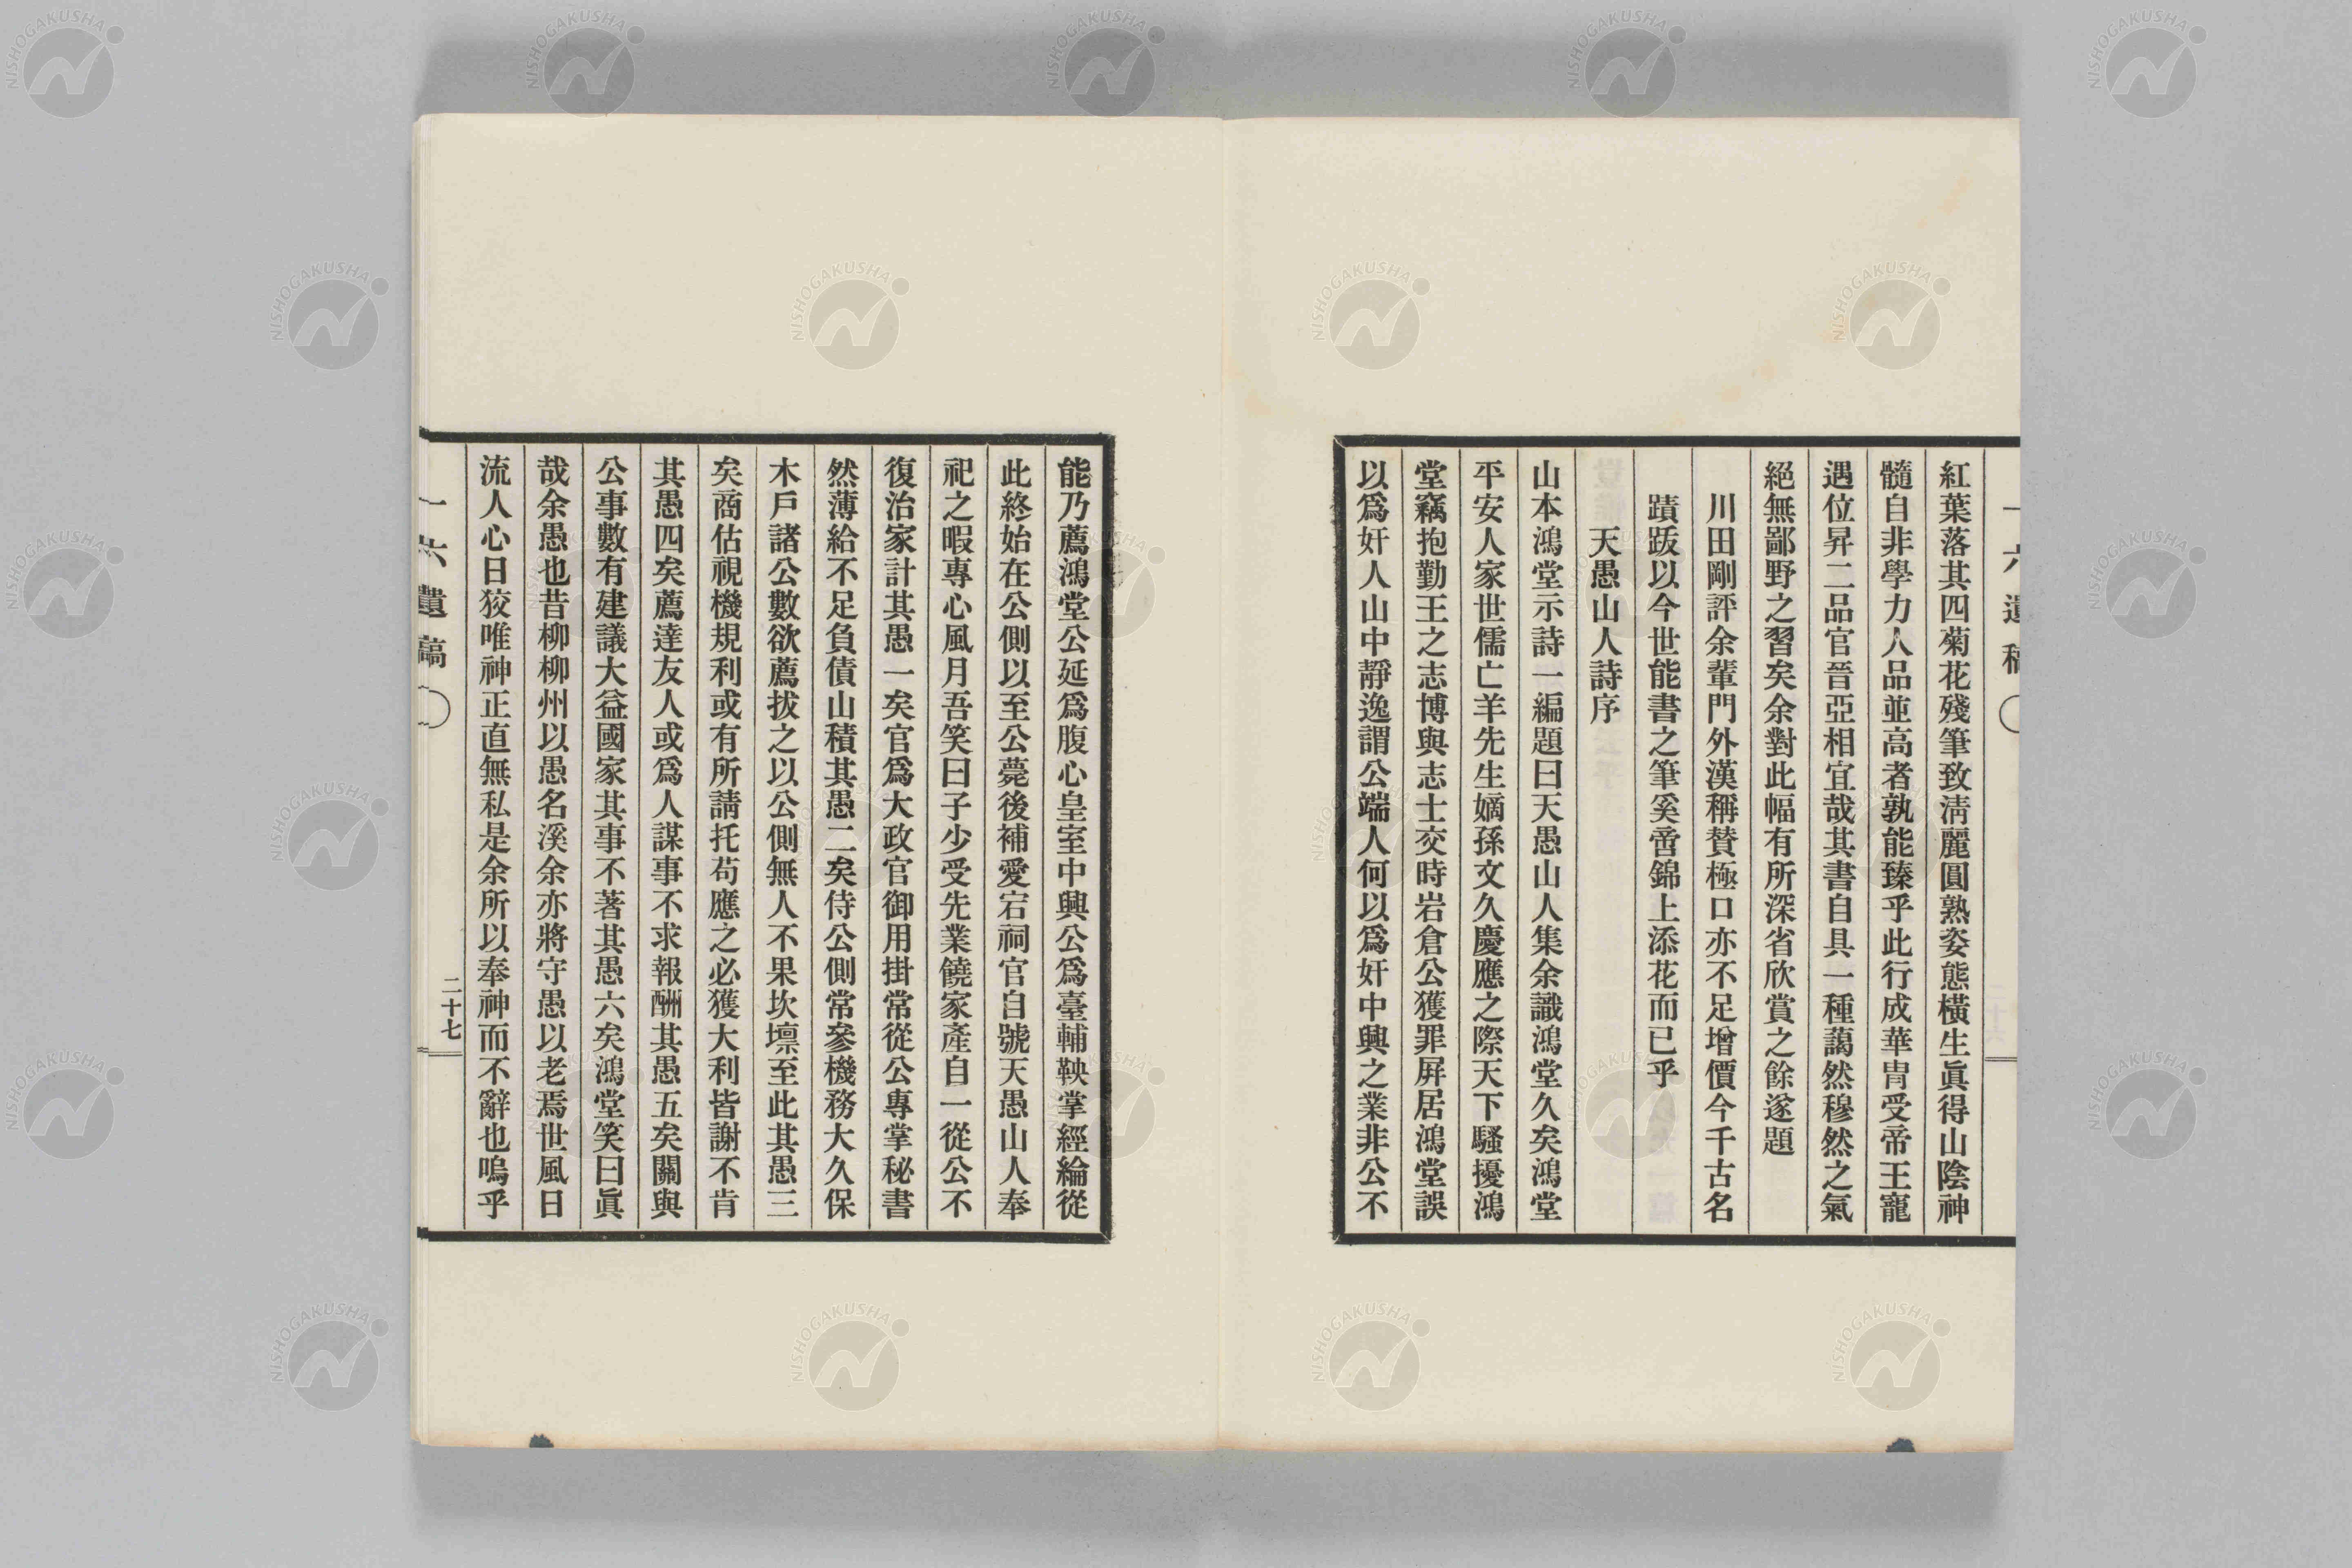 一六遺稿
紅葉落其四菊花殘筆致淸麗圓熟姿態橫生眞得山陰神
髓自非學力人品並高者孰能臻乎此行成華冑受帝王寵
遇位昇二品官晉亞相宜哉其書自具一種藹然穆然之氣
絕無鄙野之習矣余對此幅有所深省欣賞之餘遂題
川田剛評余輩門外漢稱賛極口亦不足增價今千古名
蹟跋以今世能書之筆奚啻錦上添花而已乎
天愚山人詩序
山本鴻堂示詩一編題曰天愚山人集余識鴻堂久矣鴻堂
平安人家世儒亡羊先生嫡孫文久慶應之際天下騷擾鴻
堂竊抱勤王之志博與志士交時岩倉公獲罪屛居鴻堂誤
以爲奸人山中靜逸謂公端人何以爲奸中興之業非公不
能乃薦鴻堂公延爲腹心皇室中興公爲臺輔鞅掌經綸從
此終始在公側以至公薨後補愛宕祠官自號天愚山人奉
祀之暇專心風月吾笑曰子少受先業饒家產自一從公不
復治家計其愚一矣官爲大政官御用掛常從公專掌秘書
然薄給不足負債山積其愚二矣侍公側常參機務大久保
木戶諸公數欲薦拔之以公側無人不果坎壈至此其愚三
矣商估視機規利或有所請托苟應之必獲大利皆謝不肯
其愚四矣薦達友人或爲人謀事不求報酬其愚五矣關與
公事數有建議大益國家其事不著其愚六矣鴻堂笑曰眞
哉余愚也昔柳柳州以愚名溪余亦將守愚以老焉世風日
流人心日狡唯神正直無私是余所以奉神而不辭也嗚乎
一六遺稿
二十七
NISHOGAKUSHA